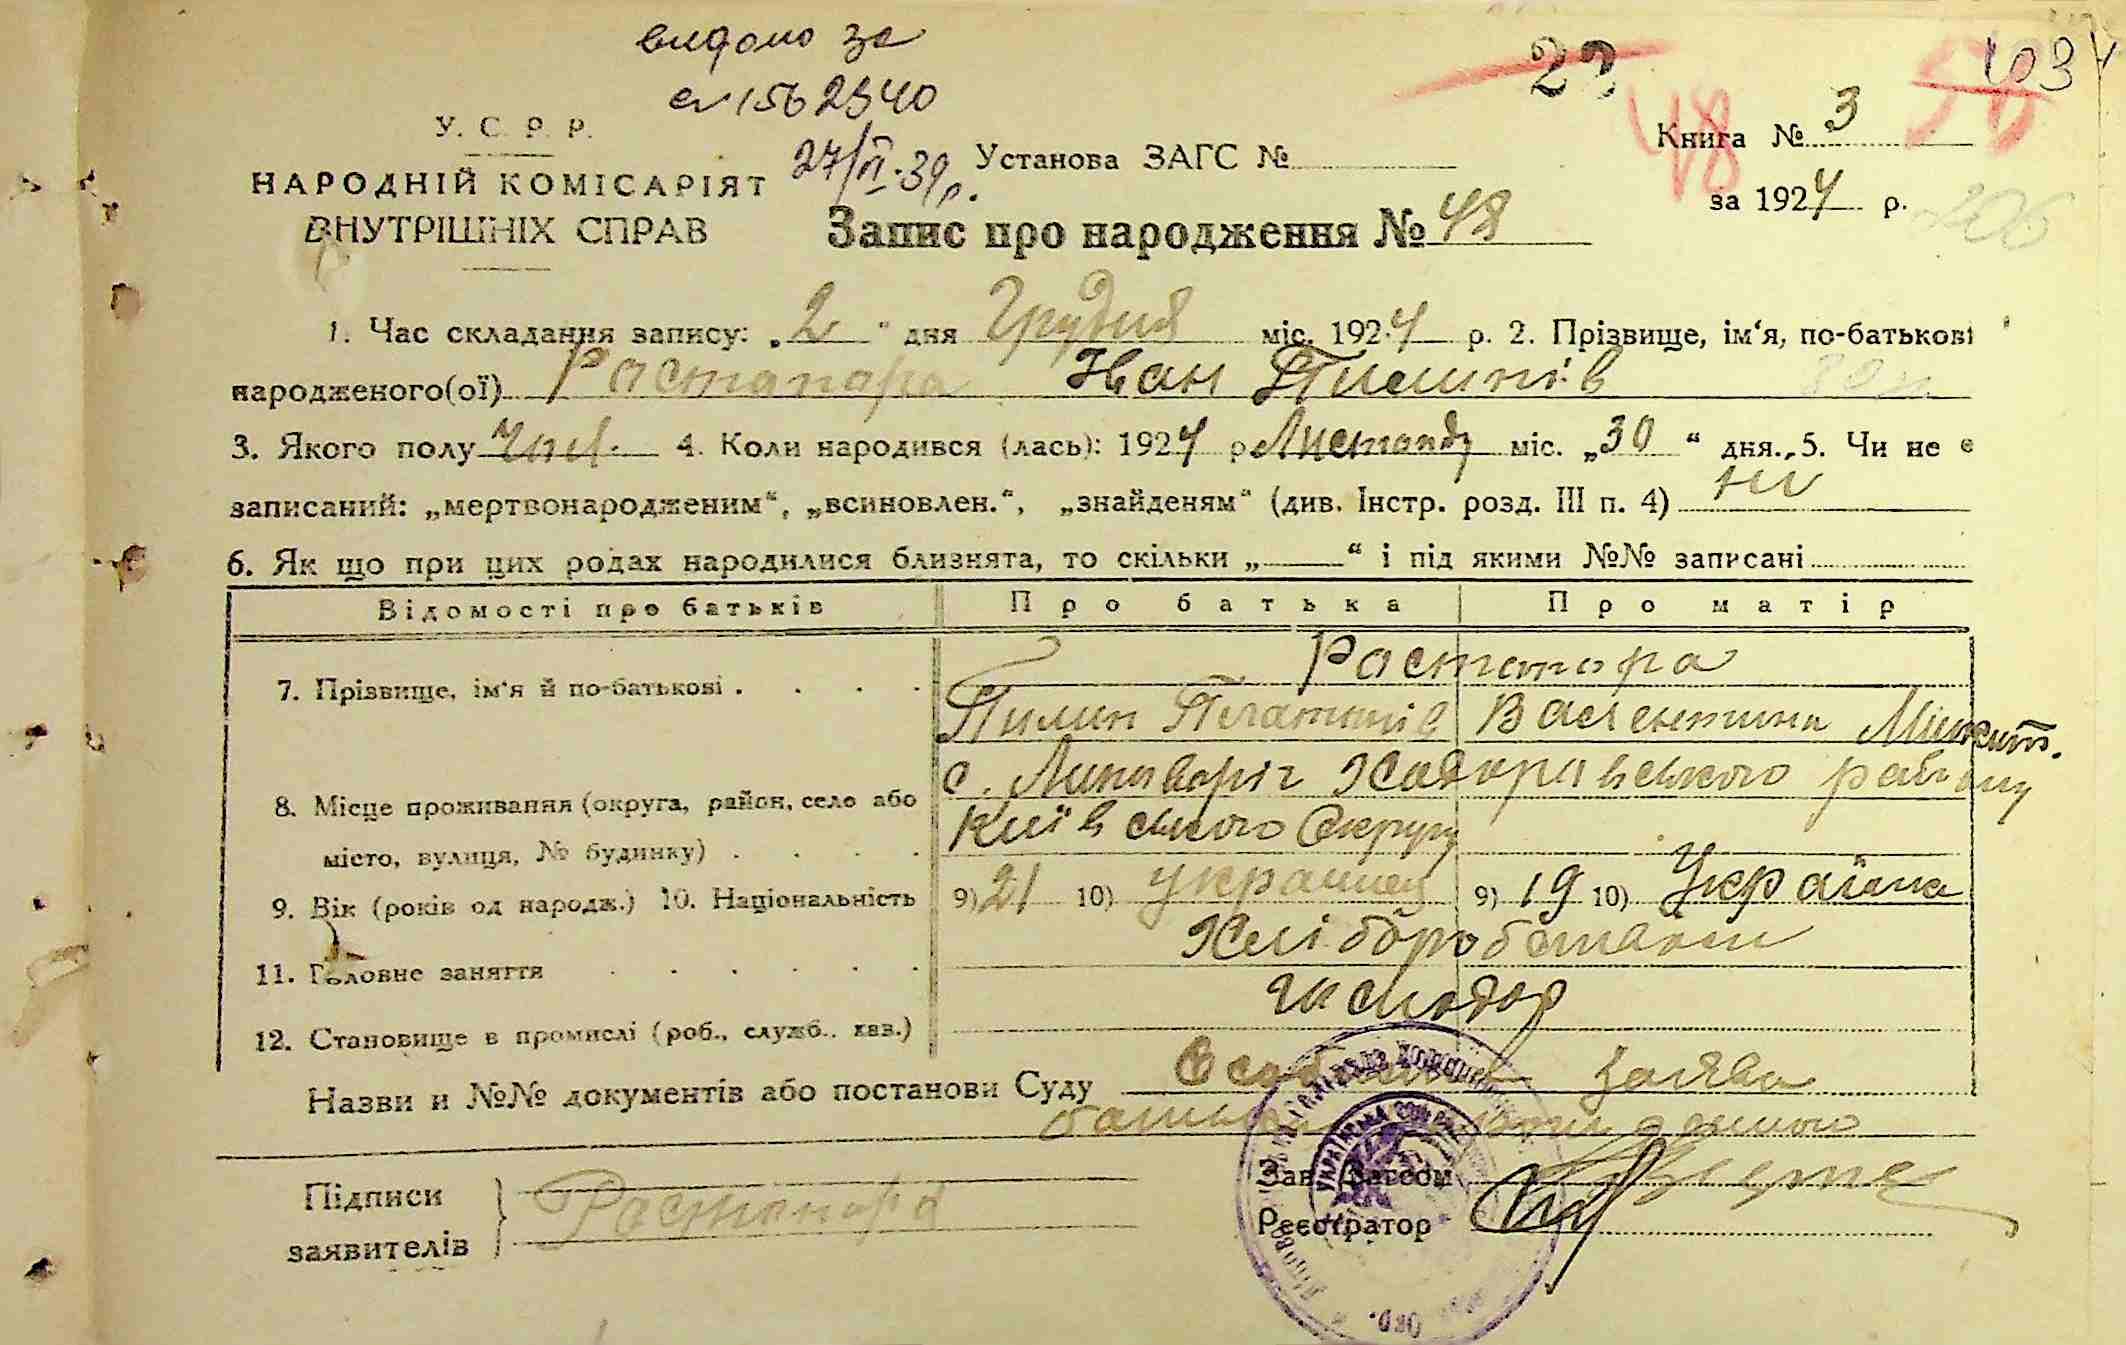 видано за
22
48
У. С. Р. Р.
Книга № 3
НАРОДНІЙ КОМІСАРІЯТ
27/VI.39р. Установа ЗАГС №
ВНУТРІШНІХ СПРАВ
за 1924 р.
206
Запис про народження № 48
1. Час складання запису: „2" дня Грудня міс. 1924 р. 2. Прізвище, ім‘я, по-батькові
народженого(ої) Растапора Іван Пилипів
3. Якого полу чол. 4. Коли народився (лась): 1924 р Листопаду міс. „30“ дня. 5. Чи не є
записаний: „мертвонародженим“, „всиновлен.“, „знайденям“ (див. Інстр. розд. III п. 4) ні
6. Як що при цих родах народилися близнята, то скільки „—“ і під якими №№ записані
Відомості про батьків Про батька Про матір
Растопора
7. Прізвище, ім‘я й по-батькові
Пилип Платонів Валентина Микит.
с. Липоваріг Ходоравського району
8. Місце проживання (округа, район, село або
Київського Округу
місто, вулиця, № будинку)
9. Вік (років од народж.) 10. Національність 9) 21 10) украинец 9) 19 10) Українка
Хлібробники
11. Головне заняття
12. Становище в промислі (роб., служб., хав.)
Назви и №№ документів або постанови Суду Особиста заява
батька
Підписи
заявителів
Растопора
Зав. Загсом
Реєстратор